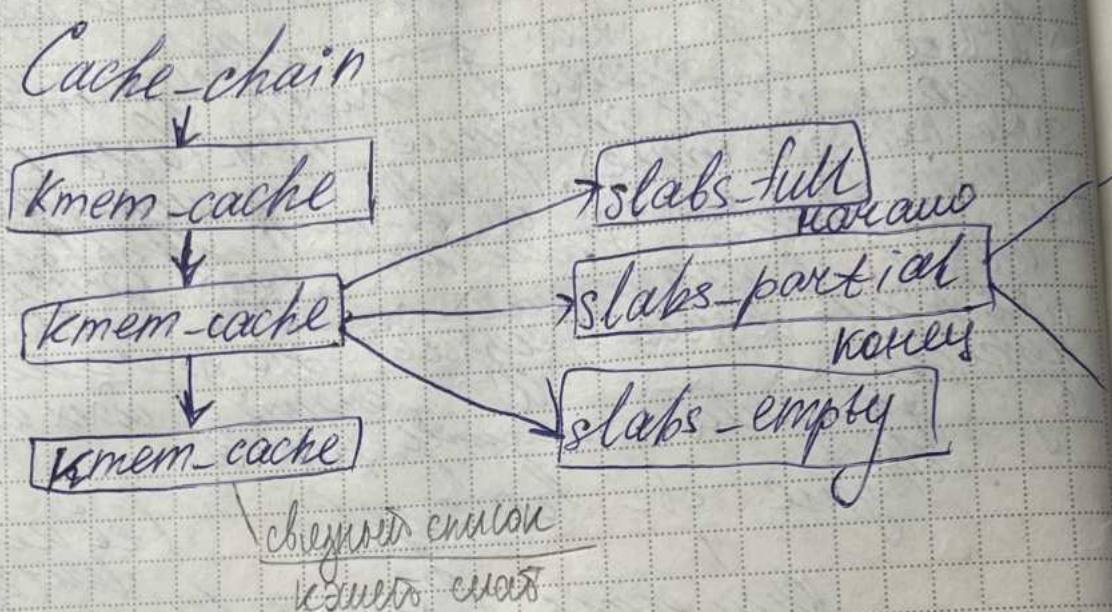 Cache_chain
kmem_cache
kmem_cache
kmem_cache
slabs_full
начало
slabs_partial
конец
slabs_empty
связный список
кэшей слаб